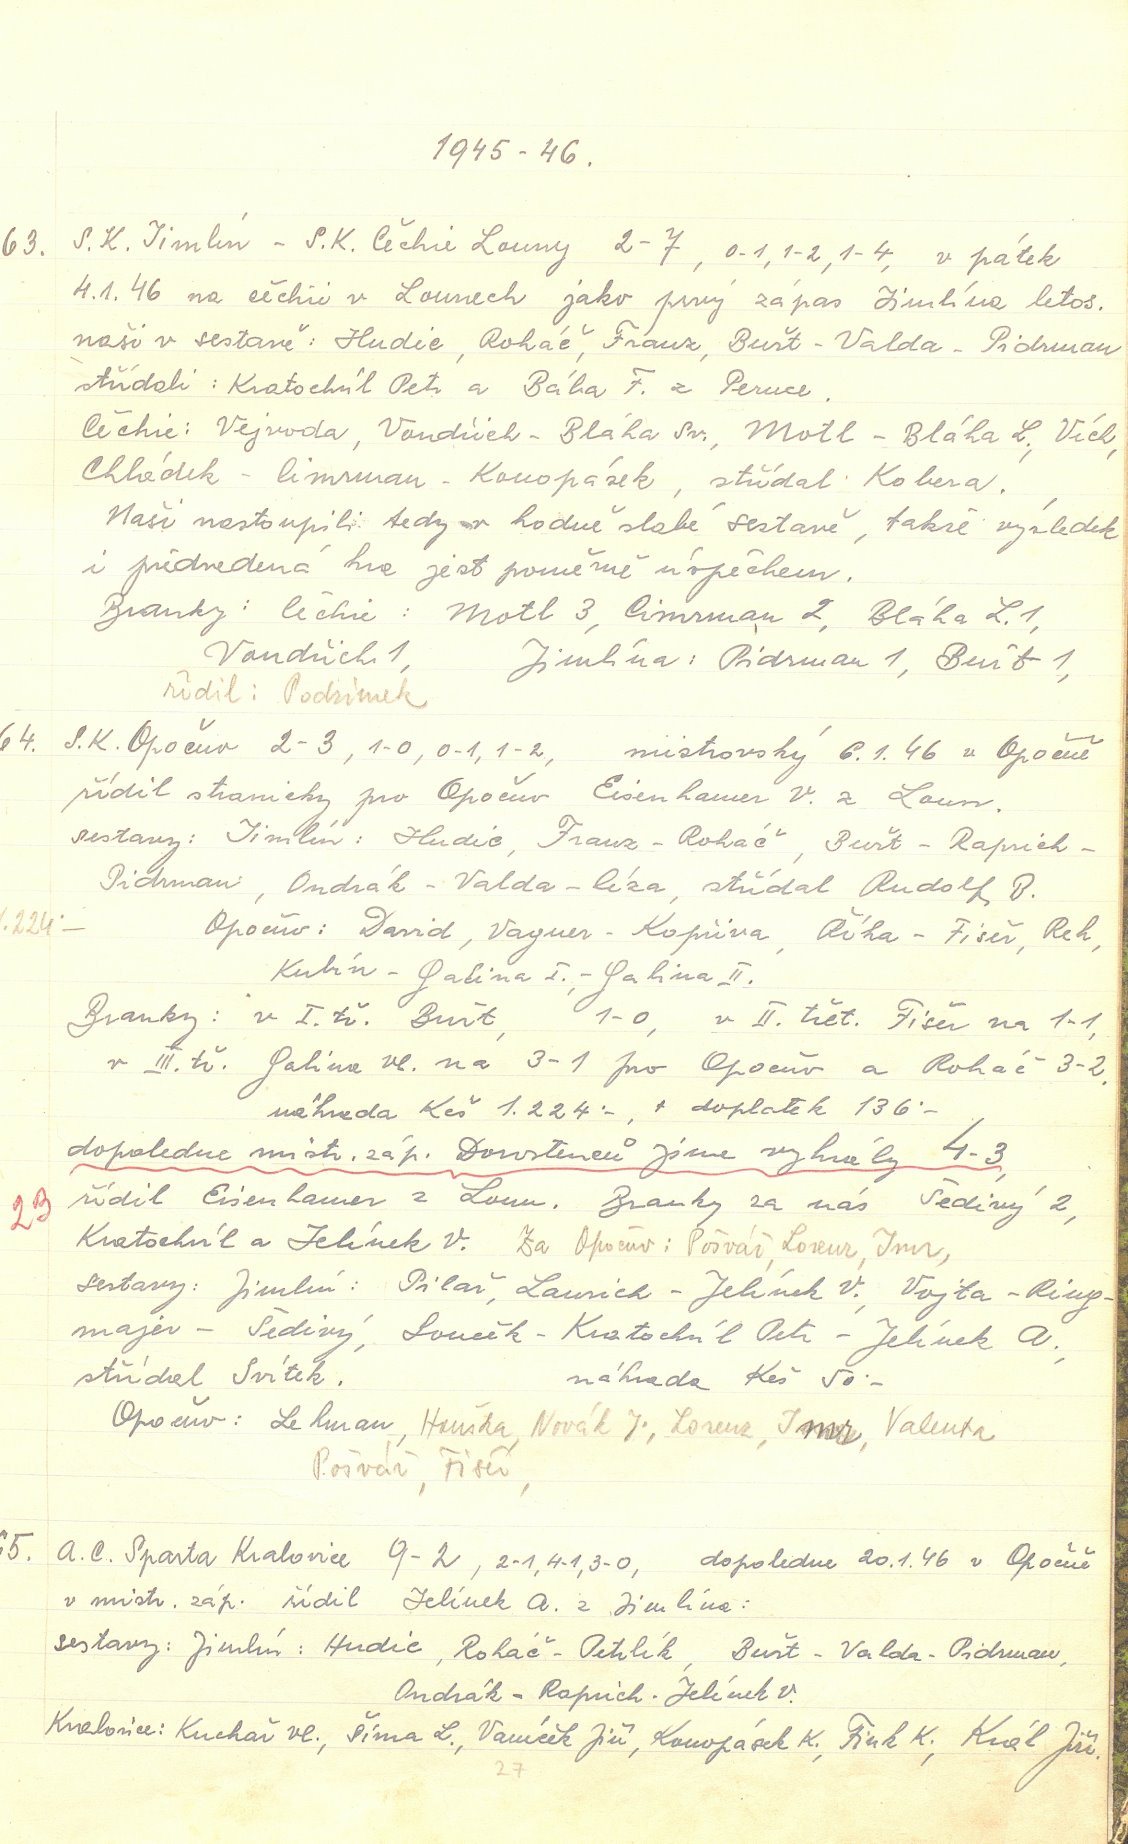 1945-46.
63. S.K. Jimlín - S.K. Čechie Louny 2-7, 0-1, 1-2, 1-4, v pátek
4.1.46 na čéchii v Lounech jako prvý zápas Jimlína letos.
naši v sestavě: Hudic, Roháč, Franz, Buršt - Valda - Pidrman
střídali: Kratochvíl Petr a Bába F. z Peruce.
Čéchie: Vejvoda, Vondřich - Bláha Sv., Motl - Bláha L., Vích,
Chládek - Cimrman - Konopásek, střídal Kobera.
Naši nastoupili tedy v hodně slabé sestavě, takže výsledek
i předvedená hra jest poměrně úspěchem.
Branky: Čéchie: Motl 3, Cimrman 2, Bláha L. 1,
Vondřich 1, Jimlína: Pidrman 1, Buršt 1,
řídil: Podzimek
64. S.K. Opočno 2-3, 1-0, 0-1, 1-2, mistrovský 6.1.46 v Opočně
řídil stranicky pro Opočno Eisenhamer V. z Loun.
sestavy: Jimlín: Hudic, Franz - Roháč, Buršt - Raprich -
Pidrman, Ondrák - Valda - Céza, střídal Rudolf B.
1.224.- Opočno: David, Vagner - Kopřiva, Říha - Fišer, Reh,
Kubín - Galina I., - Galina II.
Branky: v I. tř. Buršt, 1-0, v II. třet. Fišer na 1-1,
v III. tř. Galina vl. na 3-1 pro Opočno a Roháč 3-2,
náhrada Kčs 1.224.-, + doplatek 136.-
dopoledne mistr. záp. Dorostenců jsme vyhrály 4-3,
23 řídil Eisenhamer z Loun. Branky za nás Šedivý 2,
Kratochvíl a Jelínek V. Za Opočno: Pošvář, Lorenz, Imr,
sestavy: Jimlín: Pilař, Laurich - Jelínek V., Vojta - Ring-
majer - Šedivý, Souček - Kratochvíl Petr - Jelínek A.,
střídal Svítek. náhrada Kčs 50.-
Opočno: Lehman, Hruška, Novák J., Lorenz, Imr, Valenta
Pošvář, Fišer,
65. A.C. Sparta Kralovice 9-2, 2-1, 4-1, 3-0, dopoledne 20.1.46 v Opočně
v mistr. záp. řídil Jelínek A. z Jimlína:
sestavy: Jimlín: Hudic, Roháč - Petrlík, Buršt - Valda - Pidrman,
Ondrák - Raprich - Jelínek V.
Kralovice: Kuchař vl., Šíma L., Vaníček Jiří, Konopásek K., Fink K., Král Jiří.
27